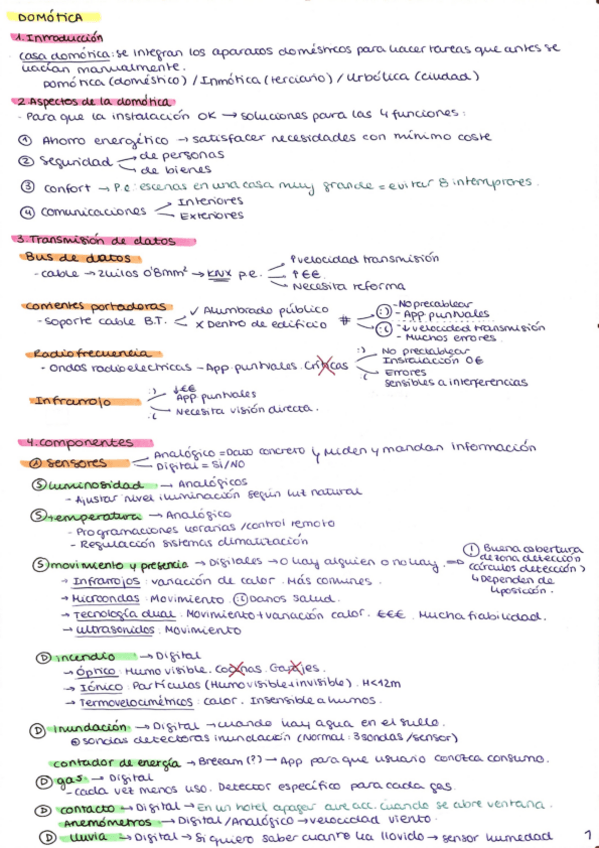 DOMÓTICA
1. Introducción
casa domótica: se integran los aparatos domésticos para hacer tareas que antes se
hacían manualmente.
Domótica (doméstico) / Inmótica (terciario) / Urbótica (ciudad)
2. Aspectos de la domótica
- Para que la instalación OK → soluciones para las 4 funciones:
① Ahorro energético → satisfacer necesidades con mínimo coste
② Seguridad → de personas
→ de bienes
③ Confort → P.e: escenas en una casa muy grande = evitar 8 interruptores.
④ Comunicaciones → Interiores
→ Exteriores
3. Transmisión de datos
Bus de datos
- cable → 2 hilos 0'8mm² → KNX p.e. → ↑velocidad transmisión
→ ↑€€.
→ Necesita reforma
Corrientes portadoras
- Soporte cable B.T. ✓ Alumbrado público
✗ Dentro de edificio # :) - No precablear
- App puntuales
:( - ↓velocidad transmisión
- Muchos errores.
Radiofrecuencia
- Ondas radioelectricas - App puntuales. Críticas :) No precablear
Instalación 0€
:( Errores
Sensibles a interferencias
Infrarrojo :) ↓€€
App puntuales
:( Necesita visión directa.
4. Componentes
Ⓐ Sensores → Analógico = Dato concreto
→ Digital = Sí/NO
↳ Miden y mandan información
Ⓢ Luminosidad → Analógicos
- Ajustar nivel iluminación según luz natural
Ⓢ Temperatura → Analógico
- Programaciones horarias / control remoto
- Regulación sistemas climatización
Ⓢ movimiento y presencia → Digitales → O hay alguien o no hay. ⇨ ! Buena cobertura
de zona detección
(círculos detección)
↳ Dependen de
posición.
→ Infrarrojos: variación de calor. Más comunes.
→ Microondas: Movimiento. :( Daños salud.
→ Tecnología dual. Movimiento + variación calor. €€€. Mucha fiabilidad.
→ Ultrasonidos. Movimiento
Ⓓ incendio → Digital
→ Óptico: Humo visible. Cocinas. Garajes.
→ Iónico: Partículas (Humo visible + invisible). H<12m
→ Termovelocimétricos: calor. Insensible a humos.
Ⓓ Inundación → Digital → cuando hay agua en el suelo.
sondas detectoras inundación (Normal: 3 sondas / sensor)
contador de energía → Breeam (?) → App para que usuario conozca consumo.
Ⓓ gas → Digital
- cada vez menos uso. Detector específico para cada gas.
Ⓓ contacto → Digital → En un hotel apagar aire acc. cuando se abre ventana.
Anemómetros → Digital / Analógico → velocidad viento.
Ⓓ Lluvia → Digital → Si quiero saber cuanto ha llovido → sensor humedad
1